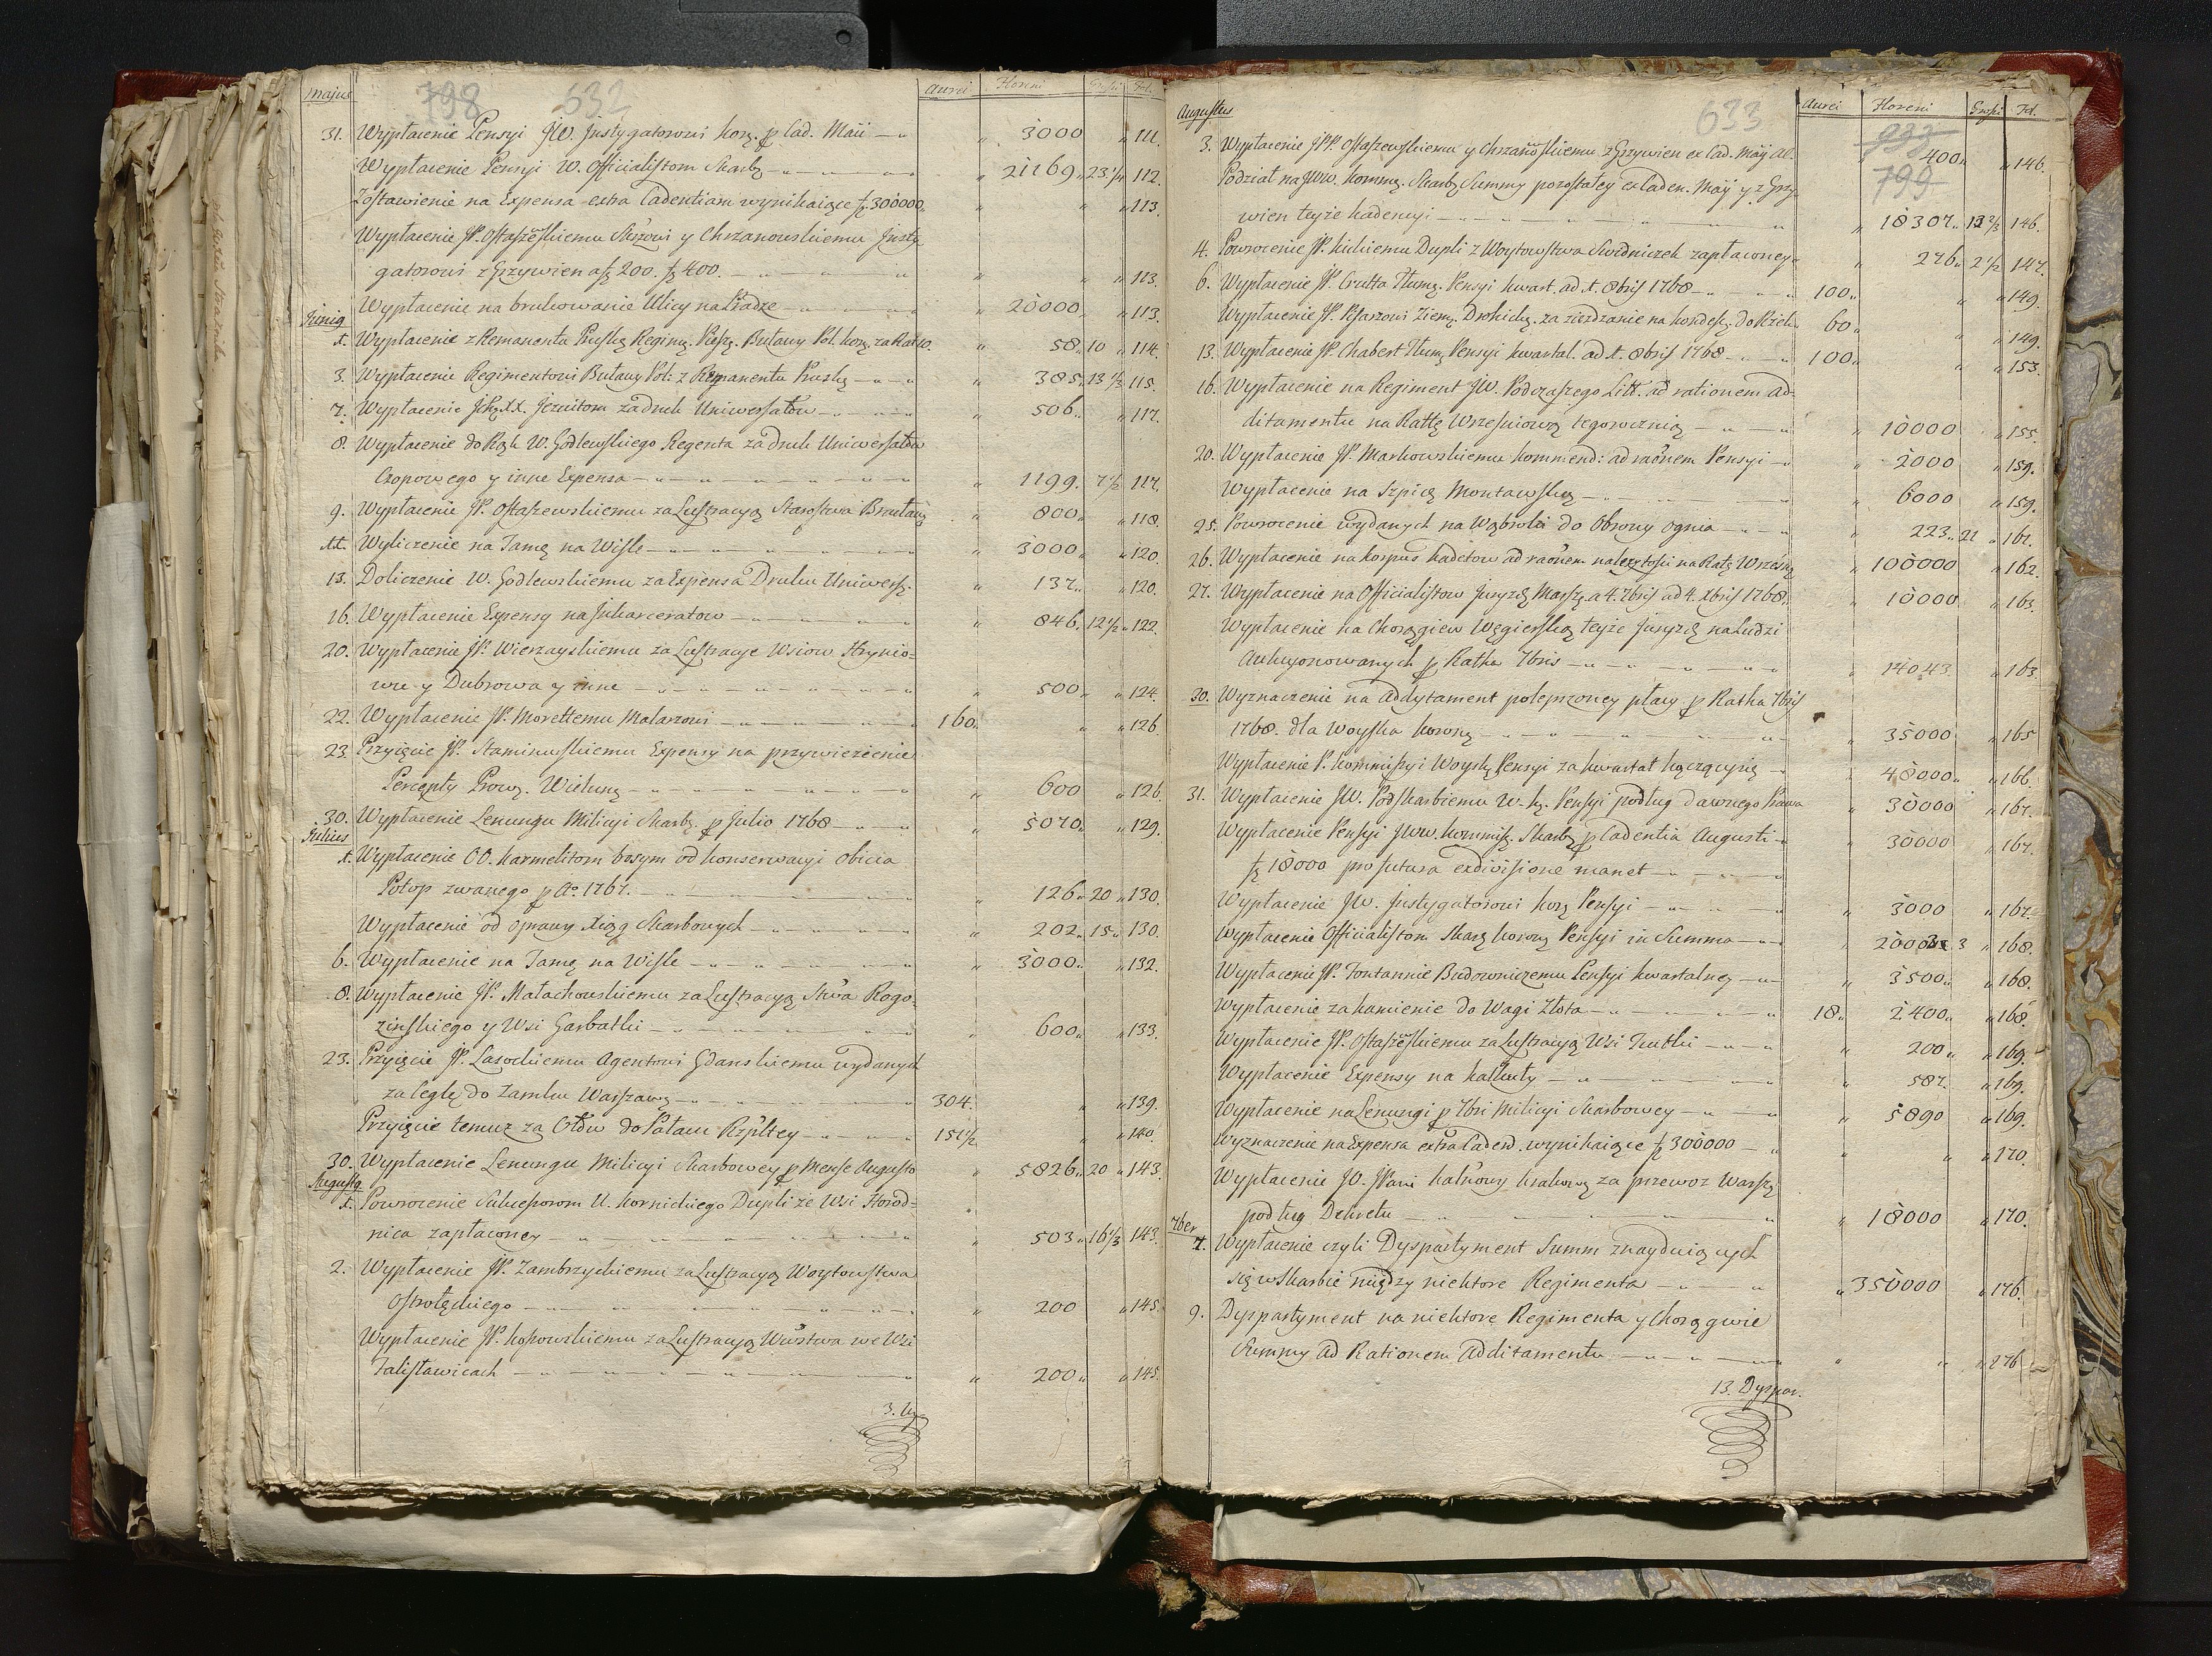 Majus 798 632 Aurei Floreni Grossi Fol.
31. Wypłacenie Pensyi JW. Justygatorowi Kor. p Cad. Maii „ 3000 „ 111.
Wypłacenie Pensyi W. Officialistom Skarb. „ 21169 „ 23 112.
Zostawienie na Expensa extra Cadentiam wynikaiące f 300000. „ „ „ 113.
Wypłacenie JP. Ostaszewskiemu y Chrzanowskiemu Justy-
gatorowi z Grzywien a f 200. f 400. „ „ „ 113.
Wypłacenie na brukowanie Ulicy na Pradze „ 20000 „ „ 113.
Junius
1. Wypłacenie z Remanentu Regim. Buławy Pol. Kor. „ 58 „ 10 „ 114.
3. Wypłacenie Regimentowi Buławy Pol: z Remanentu „ 385 „ 13 1/3 115.
7. Wypłacenie XX. Jezuitom za druk Uniwersałow „ 506 „ „ 117.
8. Wypłacenie do Rąk W. Godlewskiego Regenta za druk Uniwersałow
Czopowego y inne Expensa „ 1199. 7 1/2 117.
9. Wypłacenie JP. Ostaszewskiemu za Lustracyą Starostwa „ 800 „ „ 118.
11. Wyliczenie na Tamę na Wiśle „ 3000 „ „ 120.
13. Doliczenie W. Godlewskiemu za Expensa Druku Uniwers. „ 137 „ „ 120.
16. Wypłacenie Expensy na Inkarceratow „ 846 „ 12 1/2 „ 122.
20. Wypłacenie JP. za Lustracye Wsiow
y Dubrowa y inne „ 500 „ „ 124.
22. Wypłacenie JP. Morettemu Malarzowi 160 „ „ 126.
23. Przyięcie JP. Expensy na przywiezienie
Percepty Prow. Wielun. „ 600 „ 126.
30. Wypłacenie Lenungu Milicyi Skarb. p Julio 1768 „ 5070 „ „ 129.
Julius
1. Wypłacenie OO. Karmelitom bosym od konserwacyi obicia
Potop zwanego p Ao. 1767. „ 126 „ 20 „ 130.
Wypłacenie od oprawy Xiąg Skarbowych „ 202 „ 15 „ 130.
6. Wypłacenie na Tamę na Wiśle „ 3000 „ „ 132.
8. Wypłacenie JP. Małachowskiemu za Lustracyą Stwa Rogo-
zińskiego y Wsi Garbatki „ 600 „ „ 133.
23. Przyięcie JP. Lasockiemu Agentowi Gdanskiemu wydanych
za Cegłę do Zamku Warszaws. 304. „ „ 139.
Przyięcie temuz za Ołow do Pałacu Rzpltey 151 1/2 „ „ 140.
30. Wypłacenie Lenungu Milicyi Skarbowey p Mense Augusto „ 5826 „ 20 „ 143.
Augustus
1. Powrocenie Sukcessorom U. Kornickiego Dupli ze Wsi Horod-
nica zapłaconey „ 503 „ 16 1/3 143.
2. Wypłacenie JP. Zambrzyckiemu za Lustracyą Woytowstwa
Ostrołęckiego „ 200 „ 145.
Wypłacenie JP. Kossowskiemu za Lustracyą we Wsi
Falisławicach „ 200 „ „ 145.
3. Wy
Augustus 633 Aurei Floreni Grossi Fol.
933 799
3. Wypłacenie JPP. Ostaszewskiemu y Chrzanowskiemu z Grzywien ex Cad. Maii „ 400 „ „ 146.
Podział na JWW. Kommis. Skarb. Summy pozostałey ex Caden. Maii y z Grzy-
wien teyże kadencyi „ 18307 „ 12 2/3 146.
4. Powrocenie JP. Kickiemu Dupli z Woytowstwa zapłaconey „ 276 „ 2 1/2 147.
6. Wypłacenie JP. Crutta Tłum. Pensyi kwart. ad 1. 8bris 1768 100 „ „ „ 149.
Wypłacenie JP. Pisarzowi Ziem. Drohick. za ziezdzanie na kondes. 60 „ „ „ 149.
13. Wypłacenie JP. Chabert Tłum. Pensyi kwartal. ad 1. 8bris 1768 100 „ „ „ 153.
16. Wypłacenie na Regiment JW. Podczaszego Litt. ad rationem ad-
ditamentu na Rattę Wrześniową tegoroczną „ 10000 „ 155.
20. Wypłacenie JP. Markowskiemu Kommend: ad raonem Pensyi „ 2000 „ 159.
Wypłacenie na Szpicę Montawską „ 6000 „ 159.
25. Powrocenie wydanych na do Obrony ognia „ 223 „ 22 „ 161.
26. Wypłacenie na korpus kadetow ad raonem należytości na Ratę Wrześn. „ 100000 „ 162.
27. Wypłacenie na Officialistow Juryzd. Marsz. a 4. 7bris ad 4. Xbris 1768. „ 10000 „ 163.
Wypłacenie na Chorągiew Węgierską teyże Juryzd. na Ludzi
Aukcyonowanych p Ratha 7bris „ 14043 „ 163.
30. Wyznaczenie na addytament polepszoney płacy p Ratha 7bris
1768. dla Woyska koron. „ 35000 „ 165
Wypłacenie P. Kommissyi Woysk. Pensyi za kwartał „ 48000 „ „ 166.
31. Wypłacenie JW. Podskarbiemu W. k. Pensyi podług dawnego Prawa „ 30000 „ 167.
Wypłacenie Pensyi JWW. Kommiss. Skarb. p Cadentia Augusti „ 30000 „ 167.
f 18000 pro futura exdivisione manet
Wypłacenie JW. Justygatorowi kor. Pensyi „ 3000 „ 167.
Wypłacenie Officialistom Skar. koron. Pensyi in Summa „ „ 168.
Wypłacenie JP. Fontannie Budowniczemu Pensyi kwartalney „ 3500 „ „ 168.
Wypłacenie za kamienie do Wagi Złota 18 „ 2400 „ „ 168.
Wypłacenie JP. Ostaszewskiemu za Lustracyą Wsi „ 200 „ „ 169.
Wypłacenie Expensy na kalkuty „ 587. „ 169.
Wypłacenie na Lenungi p 7bri Milicyi Skarbowey „ 5890 „ 169.
Wyznaczenie na Expensa extra Cadend. wynikaiące f 300000 „ „ „ 170.
Wypłacenie JO. JPani krakow. za przewoz Warsz.
podług Dekretu „ 18000 „ 170.
7ber
7. Wypłacenie czyli Dyspartyment Summ znayduiących
się w Skarbie między niektore Regimenta „ 350000 „ 176.
9. Dyspartyment na niektore Regimenta y Chorągwie
Summy ad Rationem additamentu „ „ „ 176
13. Dyspar.